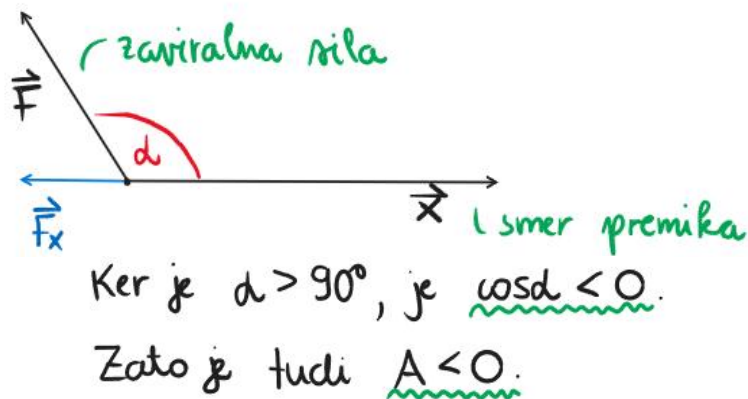 zaviralna sila
F
α
Fx
x
smer premika
Ker je α > 90°, je cosα < 0.
Zato je tudi A < 0.